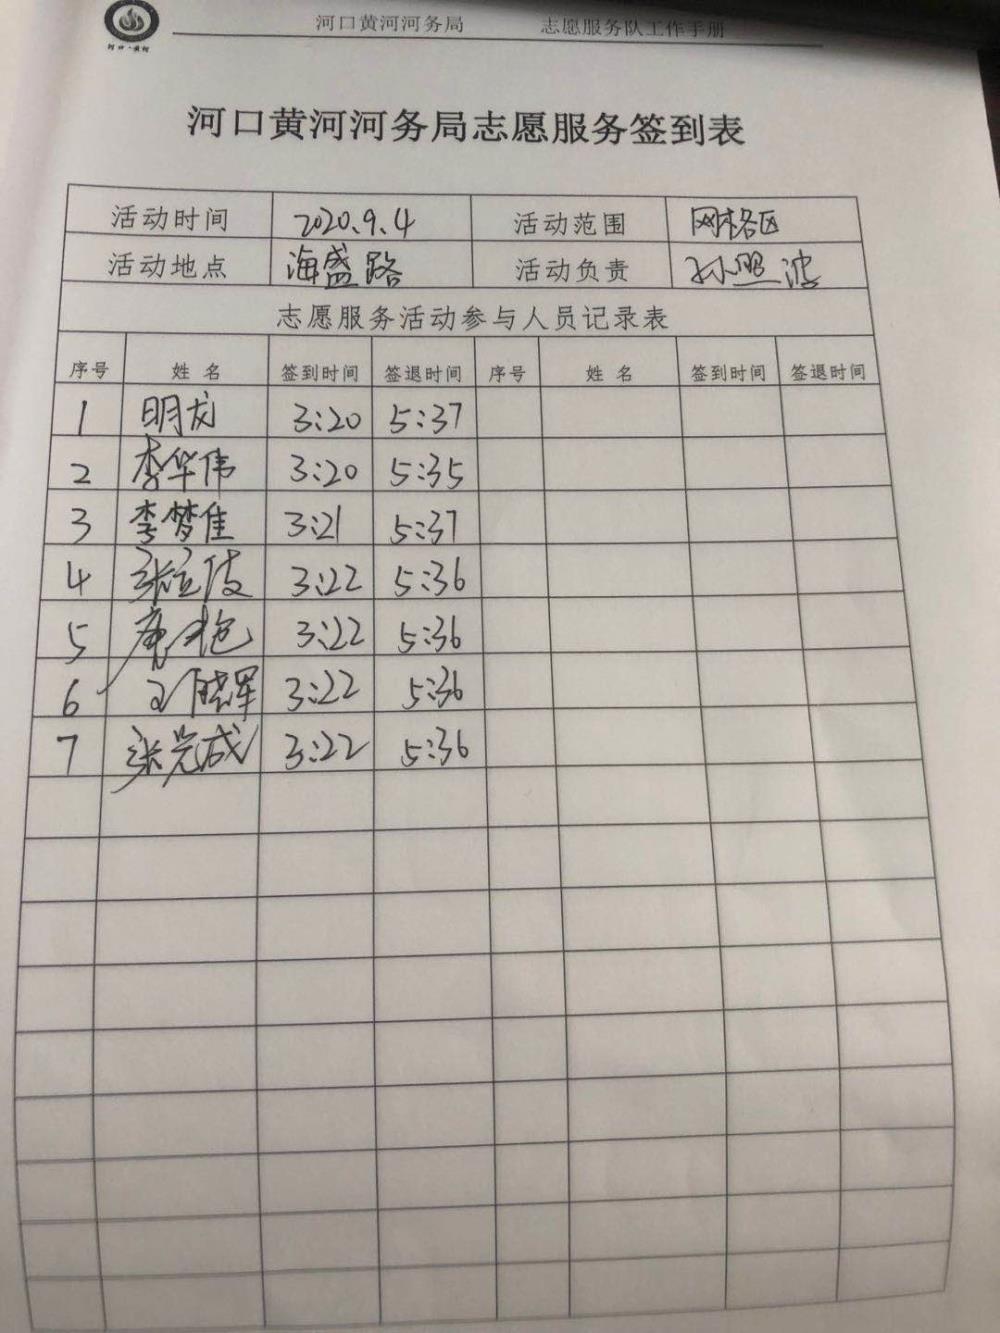 河口·黄河
河口黄河河务局 志愿服务队工作手册
河口黄河河务局志愿服务签到表
活动时间 2020.9.4 活动范围 网格区
活动地点 海盛路 活动负责 孙照波
志愿服务活动参与人员记录表
序号 姓名 签到时间 签退时间 序号 姓名 签到时间 签退时间
1 明龙 3:20 5:37
2 李华伟 3:20 5:35
3 李梦佳 3:21 5:37
4 张立俊 3:22 5:36
5 3:22 5:36
6 王晓军 3:22 5:36
7 张光成 3:22 5:36